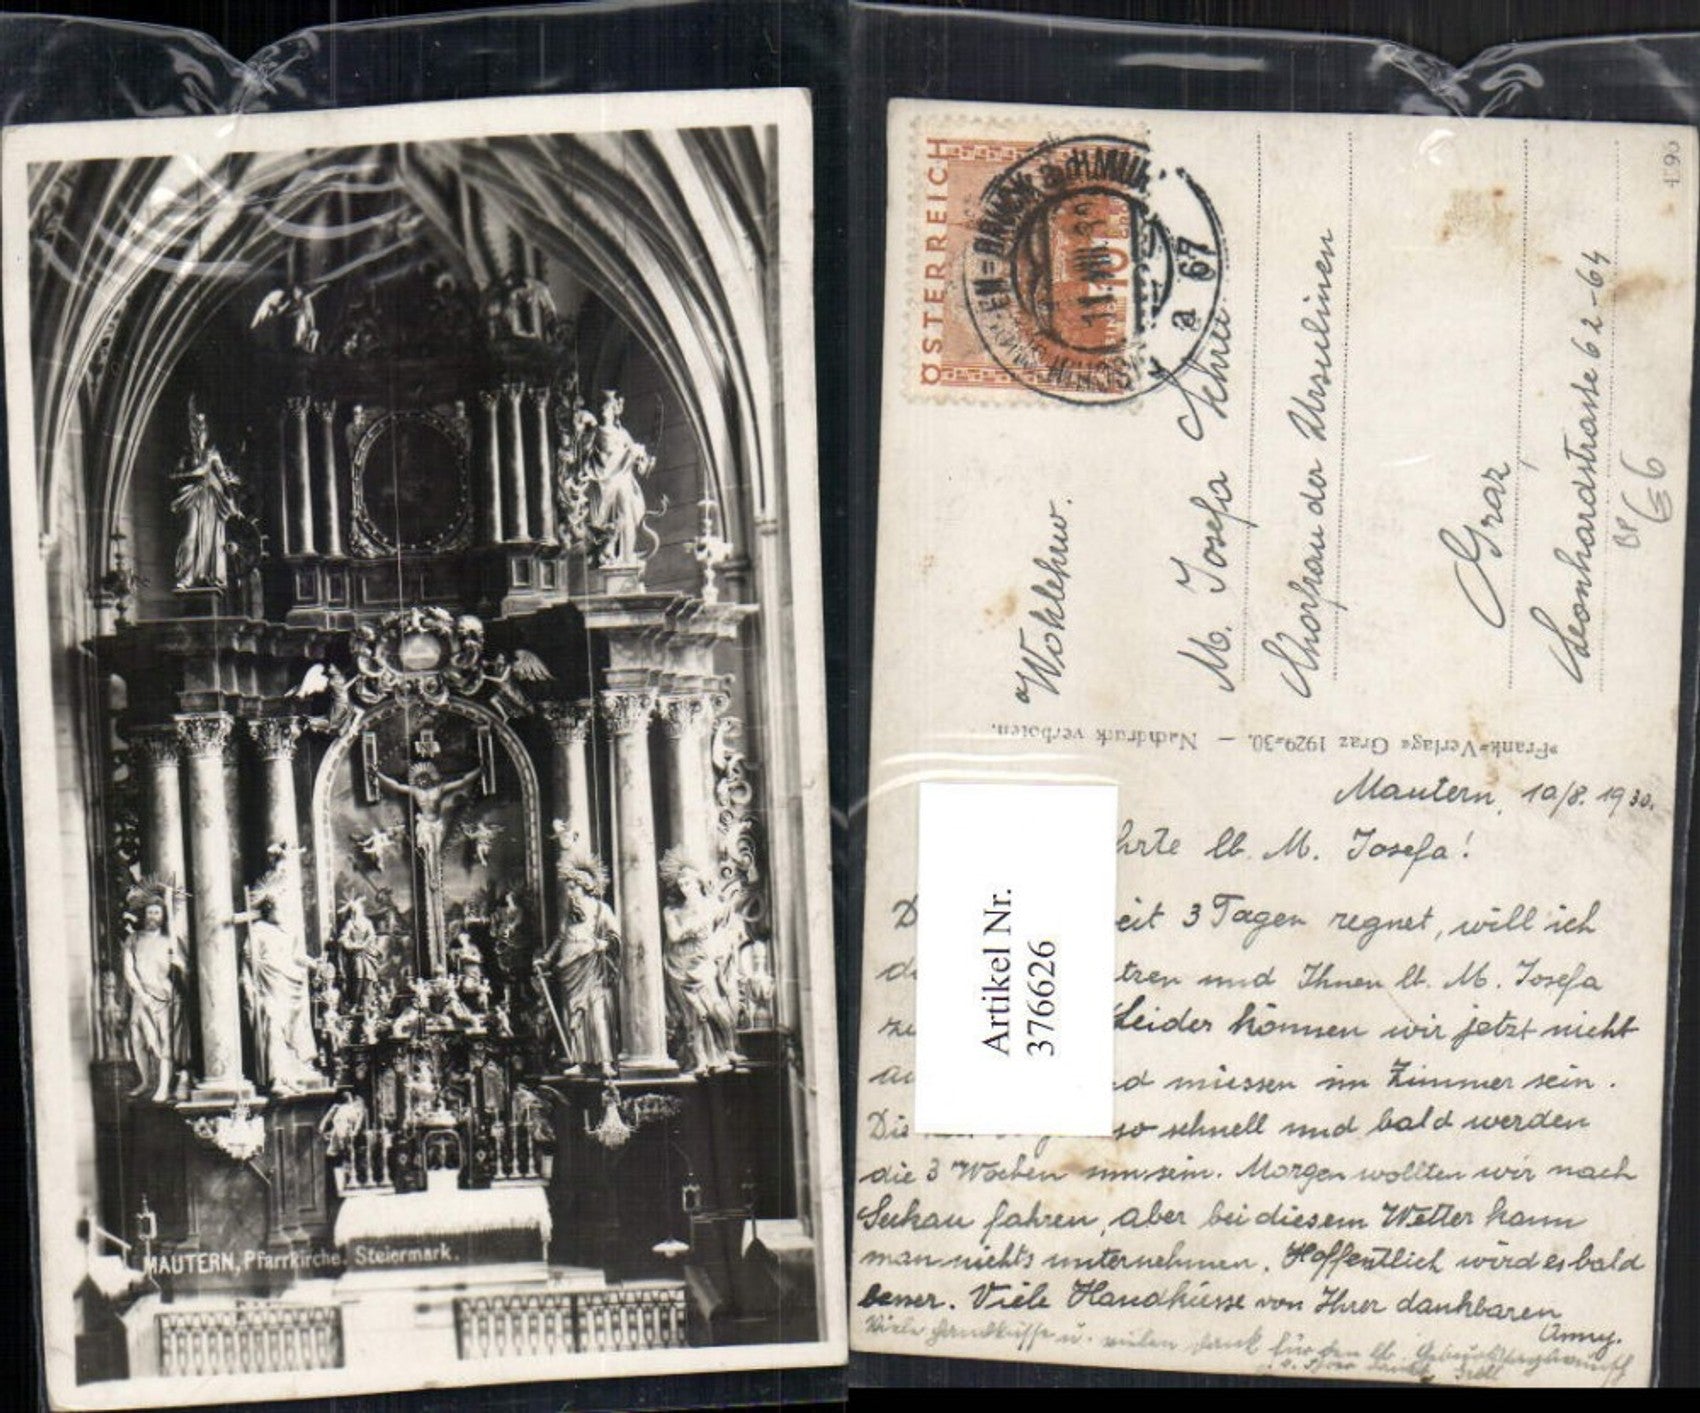 MAUTERN, Pfarrkirche. Steiermark.
ÖSTERREICH
10
11.VIII.30
a 67
4196
Wohlehrw.
M. Josefa
Chorfrau der Ursulinen
Graz
Leonhardstrasse 62-64
BP
66
»Frank«-Verlag« Graz 1929-30. — Nachdruck verboten.
Mautern, 10/8. 1930.
hrte lb. M. Josefa!
D eit 3 Tagen regnet, will ich
da tzen und Ihnen lb. M. Josefa
zu Leider können wir jetzt nicht
au d müssen im Zimmer sein.
Die so schnell und bald werden
die 3 Wochen um sein. Morgen wollten wir nach
Seckau fahren, aber bei diesem Wetter kann
man nichts unternehmen. Hoffentlich wird es bald
besser. Viele Handküsse von Ihrer dankbaren
Anny.
Viele Handküsse u. vielen Dank für den lb.
Artikel Nr.
376626